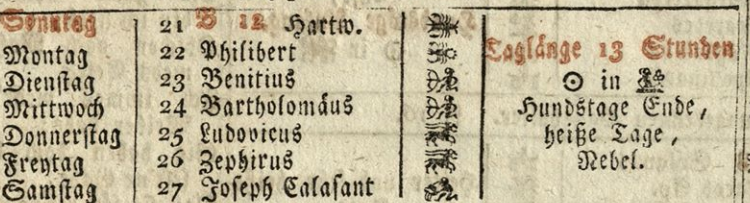 Sonntag 21 B 12 Hartw.
Montag 22 Philibert Taglänge 13 Stunden
Dienstag 23 Benitius ☉ in
Mittwoch 24 Bartholomäus Hundstage Ende,
Donnerstag 25 Ludovicus heiße Tage,
Freytag 26 Zephirus Nebel.
Samstag 27 Joseph Calasant